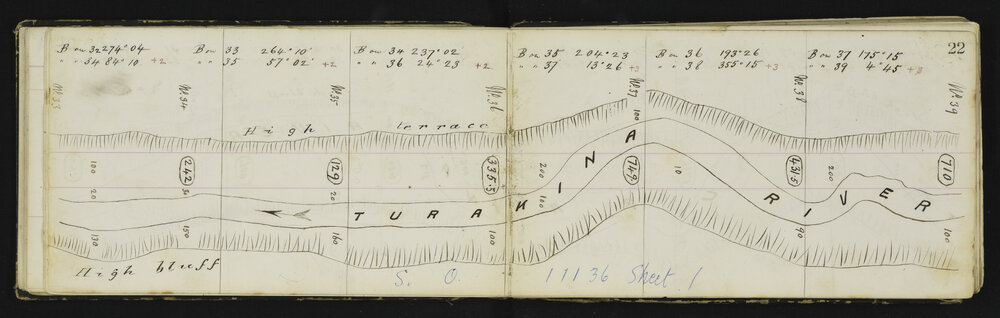 22
B on 32 274° 04 B on 33 264° 10' B on 34 237° 02' B on 35 204° 23 B on 36 193° 26 B on 37 175° 15
" " 34 84° 10 +2 " " 35 57° 02' +2 " " 36 24° 23 +2 " " 37 13° 26 +3 " " 38 355° 15 +3 " " 39 4° 45 +3
No. 33 No. 34 No. 35 No. 36 No. 37 No. 38 No. 39
High terrace
100 242 129 335.5 200 100 749 10 431.5 200 710
20 30 20
TURAKINA RIVER
130 150 160 100 90 100
High bluff
S. O. 11136 Sheet 1